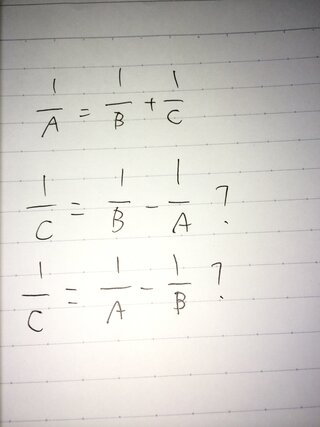 1/A = 1/B + 1/C
1/C = 1/B - 1/A ?
1/C = 1/A - 1/B ?